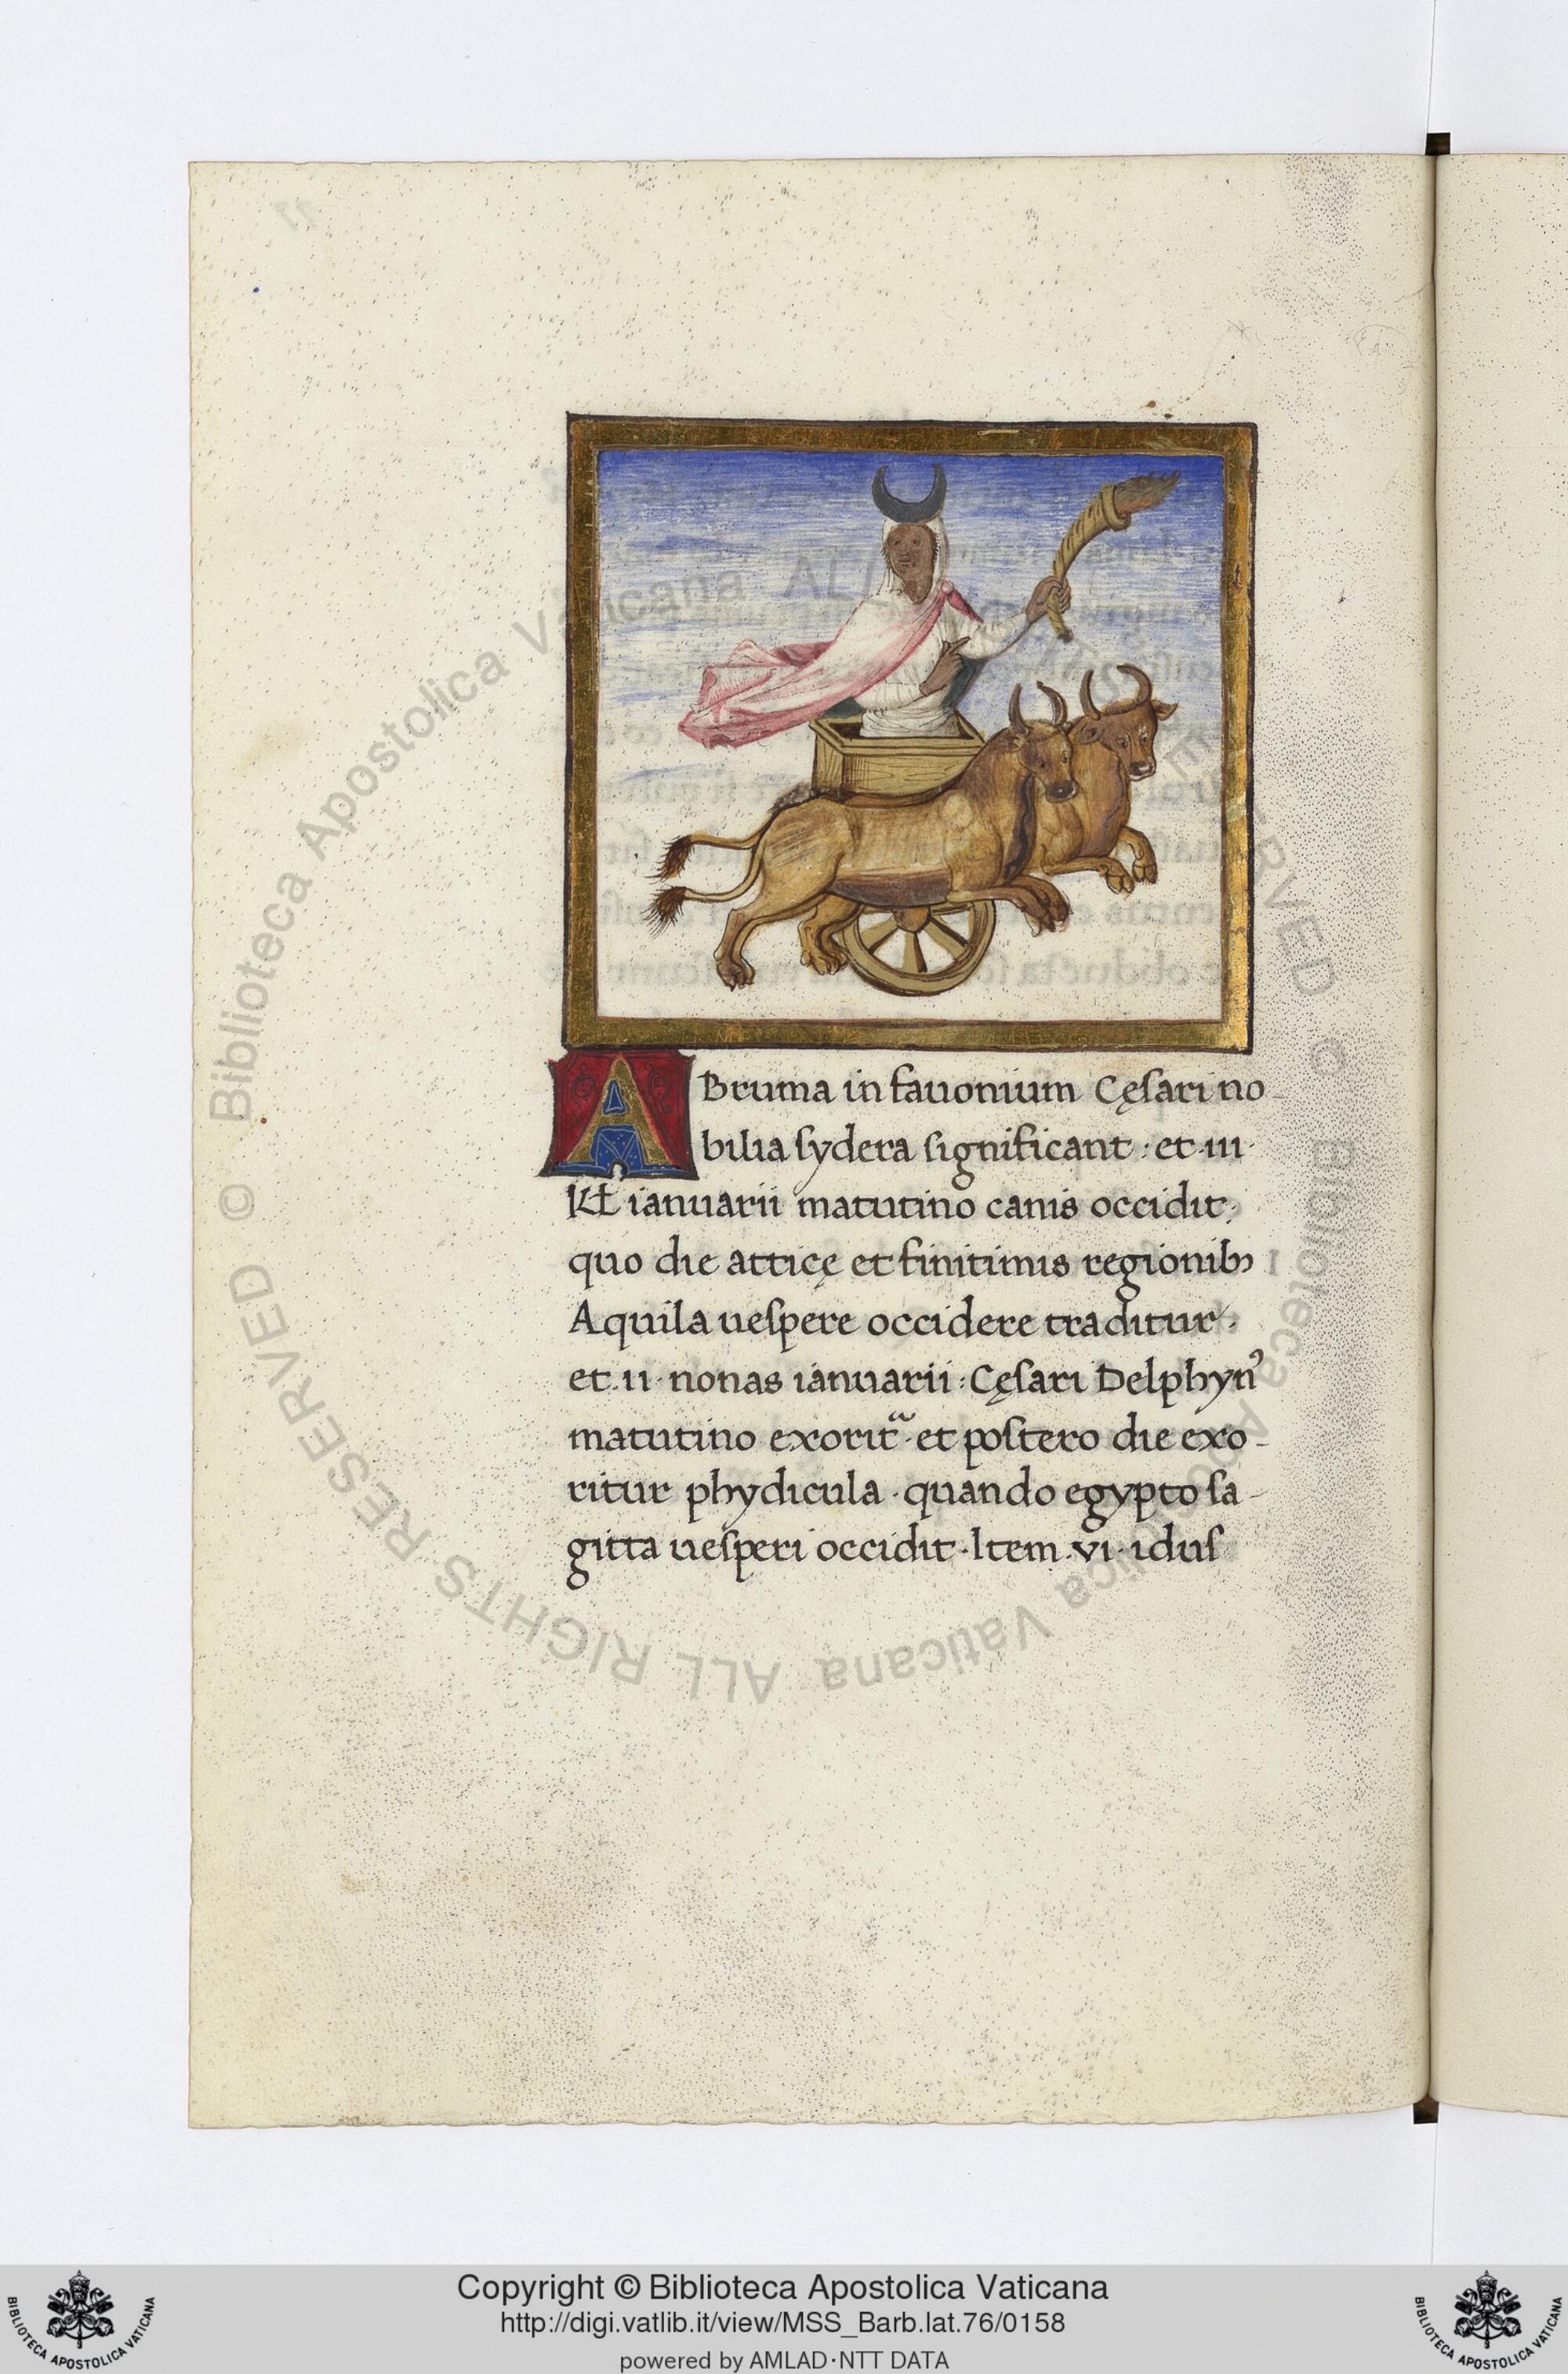 ABruma in fauonium Cęſari no-
bilia ſydera ſignificant : et · iii ·
Kƚ ianuarii matutino canis occidit ;
quo die atticę et finitimis regionibꝫ
Aquila ueſpere occidere traditur ·
et · ii · nonas ianuarii : Cęſari Delphynꝰ
matutino exoritᷓ · et poſtero die exo-
ritur phydicula · quando egypto ſa-
gitta ueſperi occidit · Item · vi · iduſ
© Biblioteca Apostolica Vaticana ALL RIGHTS RESERVED
Copyright © Biblioteca Apostolica Vaticana
http://digi.vatlib.it/view/MSS_Barb.lat.76/0158
powered by AMLAD·NTT DATA
BIBLIOTECA APOSTOLICA VATICANA
BIBLIOTECA APOSTOLICA VATICANA